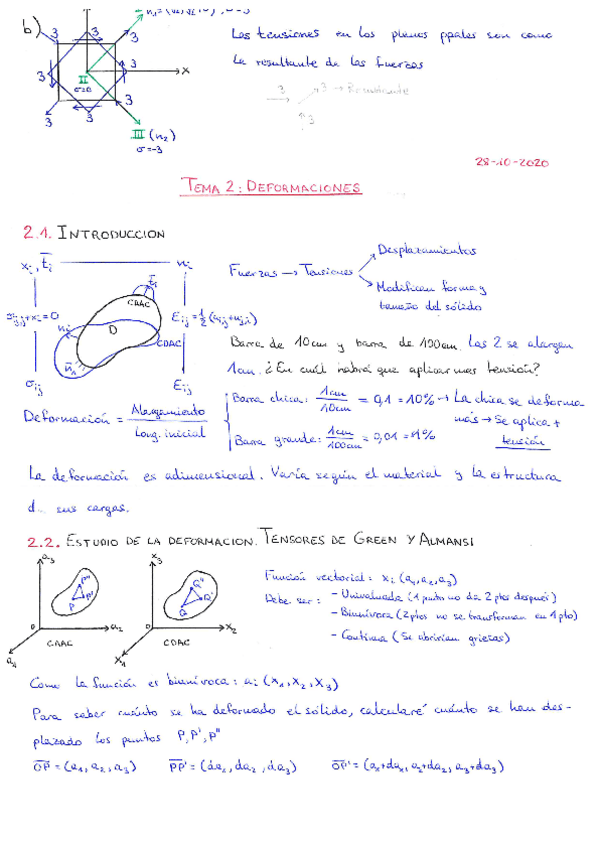 b)
Las tensiones en los planos ppales son como
la resultante de las fuerzas
3 → Resultante
3
3 3
3 3
3 3
3 3
II
σ=0
x
III (n₂)
σ=-3
28-10-2020
TEMA 2: DEFORMACIONES
2.1. INTRODUCCION
Fuerzas → Tensiones
Desplazamientos
Modifican forma y
tamaño del sólido
CAAC
D
CDAC
Eij = ½(ui,j+uj,i)
σij
Eij
Barra de 10cm y barra de 100cm. Las 2 se alargan
1cm. ¿En cuál habrá que aplicar mas tensión?
Deformación = Alargamiento / Long. inicial
Barra chica: 1cm/10cm = 0,1 = 10% → La chica se deforma
más → Se aplica +
tensión
Barra grande: 1cm/100cm = 0,01 = 1%
La deformación es adimensional. Varía según el material y la estructura
d sus cargas.
2.2. ESTUDIO DE LA DEFORMACION. TENSORES DE GREEN Y ALMANSI
a₃ a₂ a₁ 0 P P' P'' CAAC
x₃ x₂ x₁ 0 Q Q' Q'' CDAC
Función vectorial: xi (a₁,a₂,a₃)
Debe ser: - Univaluada (1 punto no da 2 ptos después)
- Biunívora (2 ptos no se transforman en 1 pto)
- Continua (Se abrirían grietas)
Como la función es biunívoca: ai (x₁, x₂, x₃)
Para saber cuánto se ha deformado el sólido, calcularé cuánto se han des-
plazado los puntos P, P', P''
OP = (a₁, a₂, a₃) PP' = (da₁, da₂, da₃) OP' = (a₁+da₁, a₂+da₂, a₃+da₃)